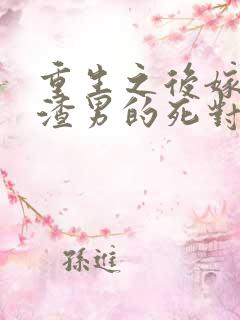 重生之後嫁
渣男的死對
孫進